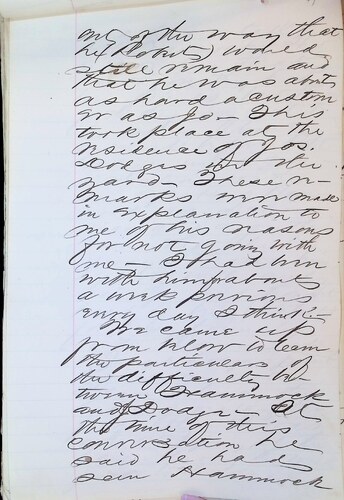 out of the way that
he (Roberts) would
still remain and
that he was about
as hard a custom
er as Jo - This
took place at the
residence of Jos.
Dodges in the
yard - These re-
marks were made
in explanation to
me of his reasons
for not going with
me - I had been
with him about
a week previous
every day I think -
We came up
from below to learn
the particulars of
the difficulty be-
tween Hammock
and Dodge - At
the time of this
conversation he
said he had
seen Hammock